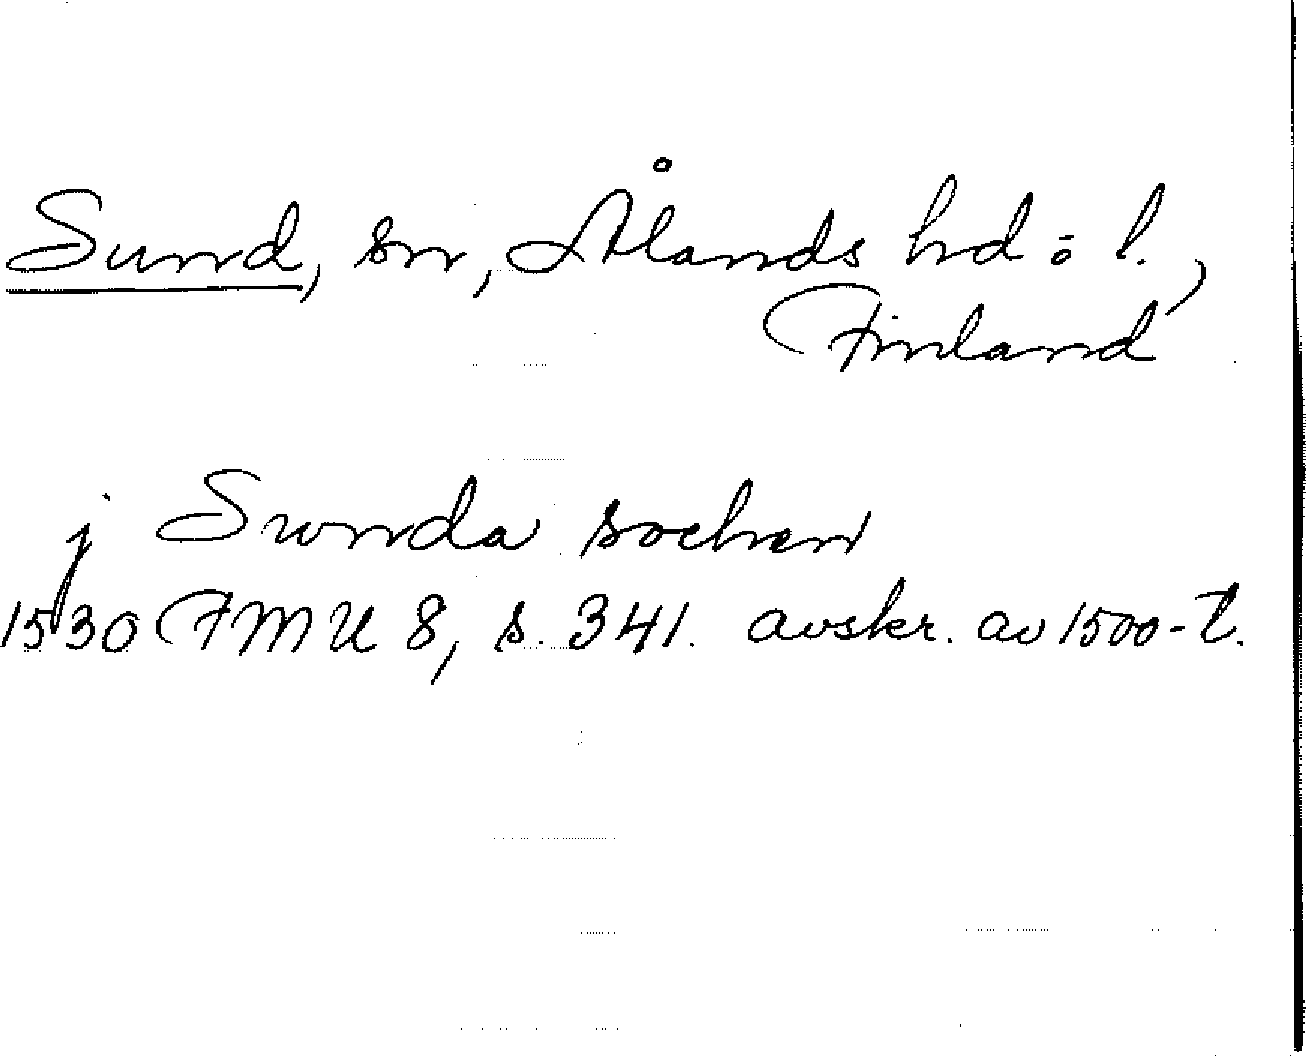 Sund, sn, Ålands hd o l.,
Finland
j Swnda sochen
1530 FMU 8, s. 341. avskr. av 1500-t.